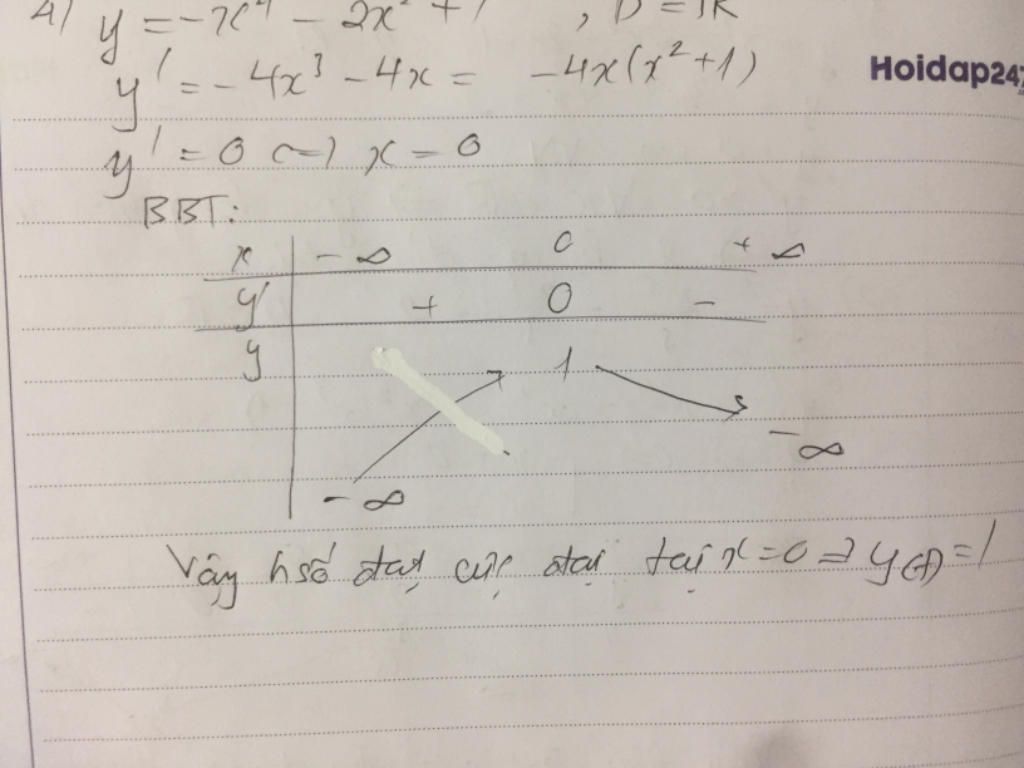 4) y = -x⁴ - 2x² + 1 , D = ℝ
y' = -4x³ - 4x = -4x(x² + 1)
Hoidap247
y' = 0 ⟺ x = 0
BBT:
x -∞ 0 +∞
y' + 0 -
y 1
-∞
-∞
Vậy hsố đạt cực đại tại x = 0 ⇒ y = 1